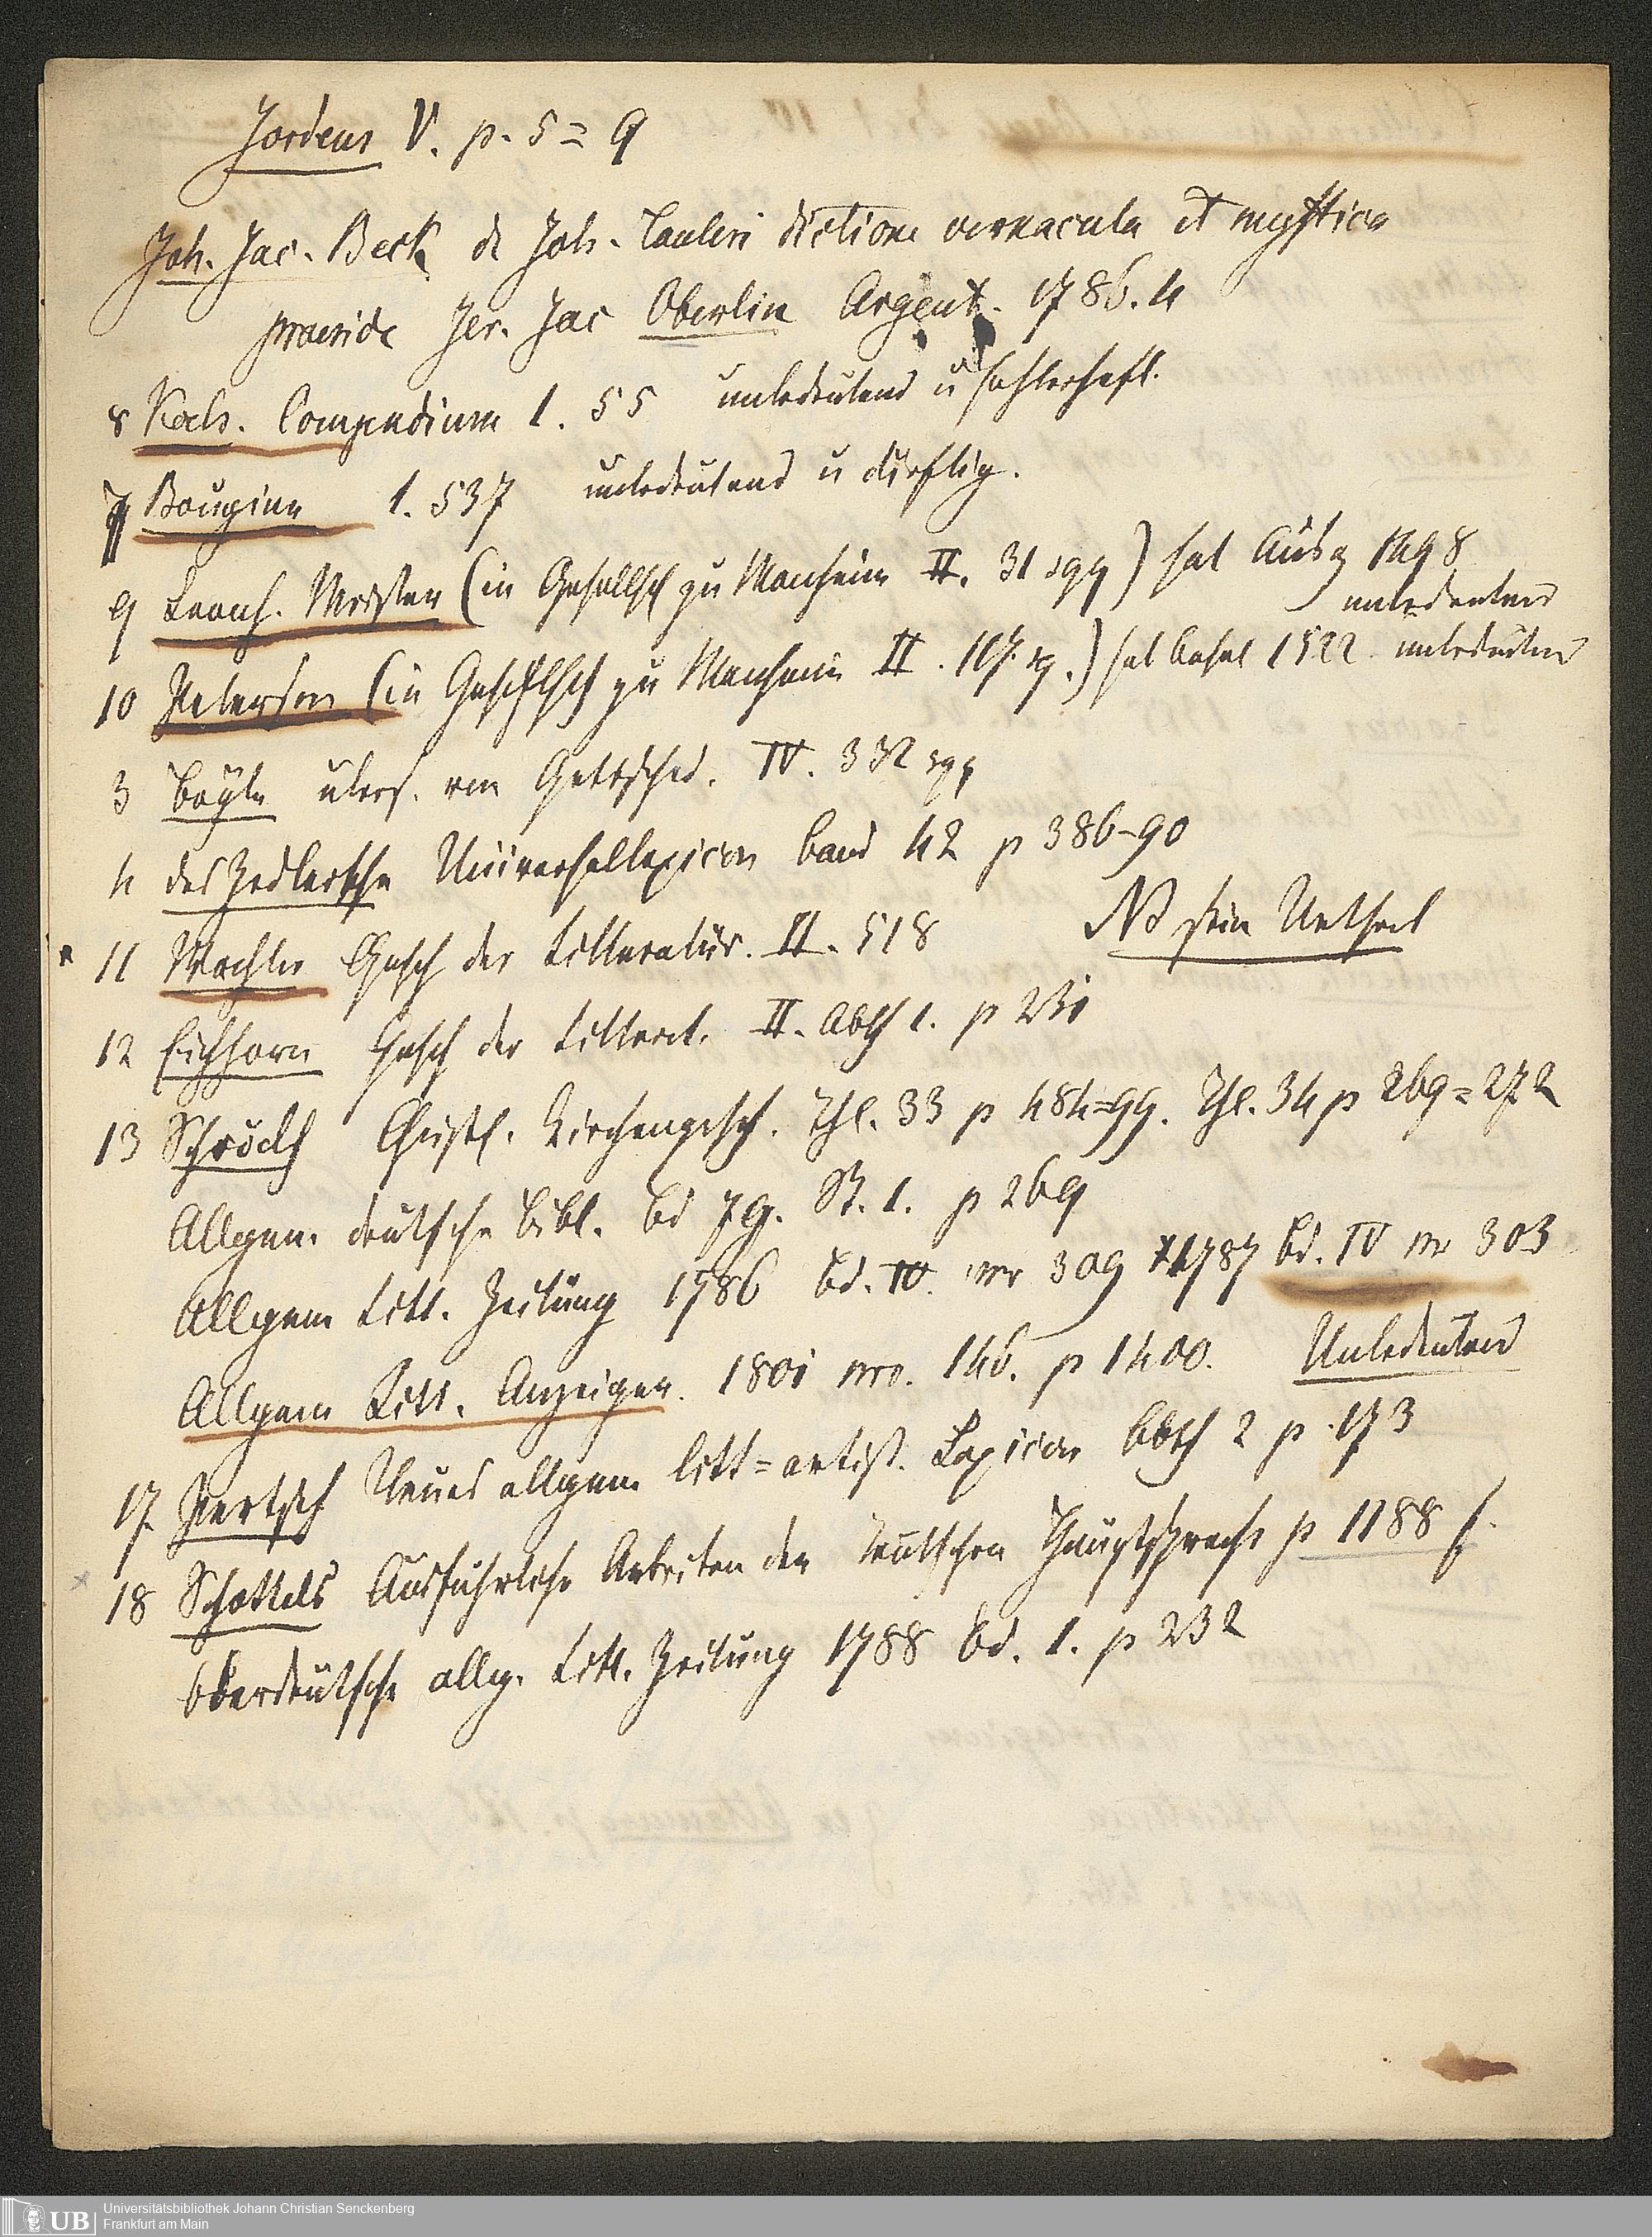 Jordens V. p. 5=9
Joh. Jac. Beck de Joh. Tauleri dictione vernacula et mystica
praeside Jer. Jac Oberlin Argent. 1786. 4
8 Koch. Compendium 1. 55 unbedeutend u fehlerhaft.
7 Bougine 1. 537 unbedeutend u dürftig.
9 Leonh. Meister (in Gesellsch zu Manheim II. 31 sqq) hat Ausg 1498
unbedeutend
10 Petersen (in Gesellsch zu Manheim II. 107. sq.) hat Basel 1522 unbedeutend
3 Bayle übers. von Gottsched. IV. 332 sqq
4 das Zedlersche Universallexicon Band 42 p 386-90
11 Wachler Gesch der Litteratur. II. 518 NB sein Urtheil
12 Eichhorn Gesch der Litterat. II. Abth 1. p 231
13 Schröckh Christl. Kirchengesch. Thl. 33 p 484=99. Thl. 34 p 269=272
Allgem. deutsche Bibl. Bd 79. St. 1. p 269
Allgem Litt. Zeitung 1786 Bd. IV. nro 309 1787 Bd. IV nr 303
Allgem Litt. Anzeiger. 1801 nro. 146. p 1400. Unbedeutend
17. Pertsch Neues allgem. litt=artist. Lexicon Abth 2 p. 173
18 Schottels Ausführliche Arbeiten der Teutschen Hauptsprache p 1188 f.
Oberdeutsche allg. Litt. Zeitung 1788 Bd. 1. p 232
UB Universitätsbibliothek Johann Christian Senckenberg
Frankfurt am Main